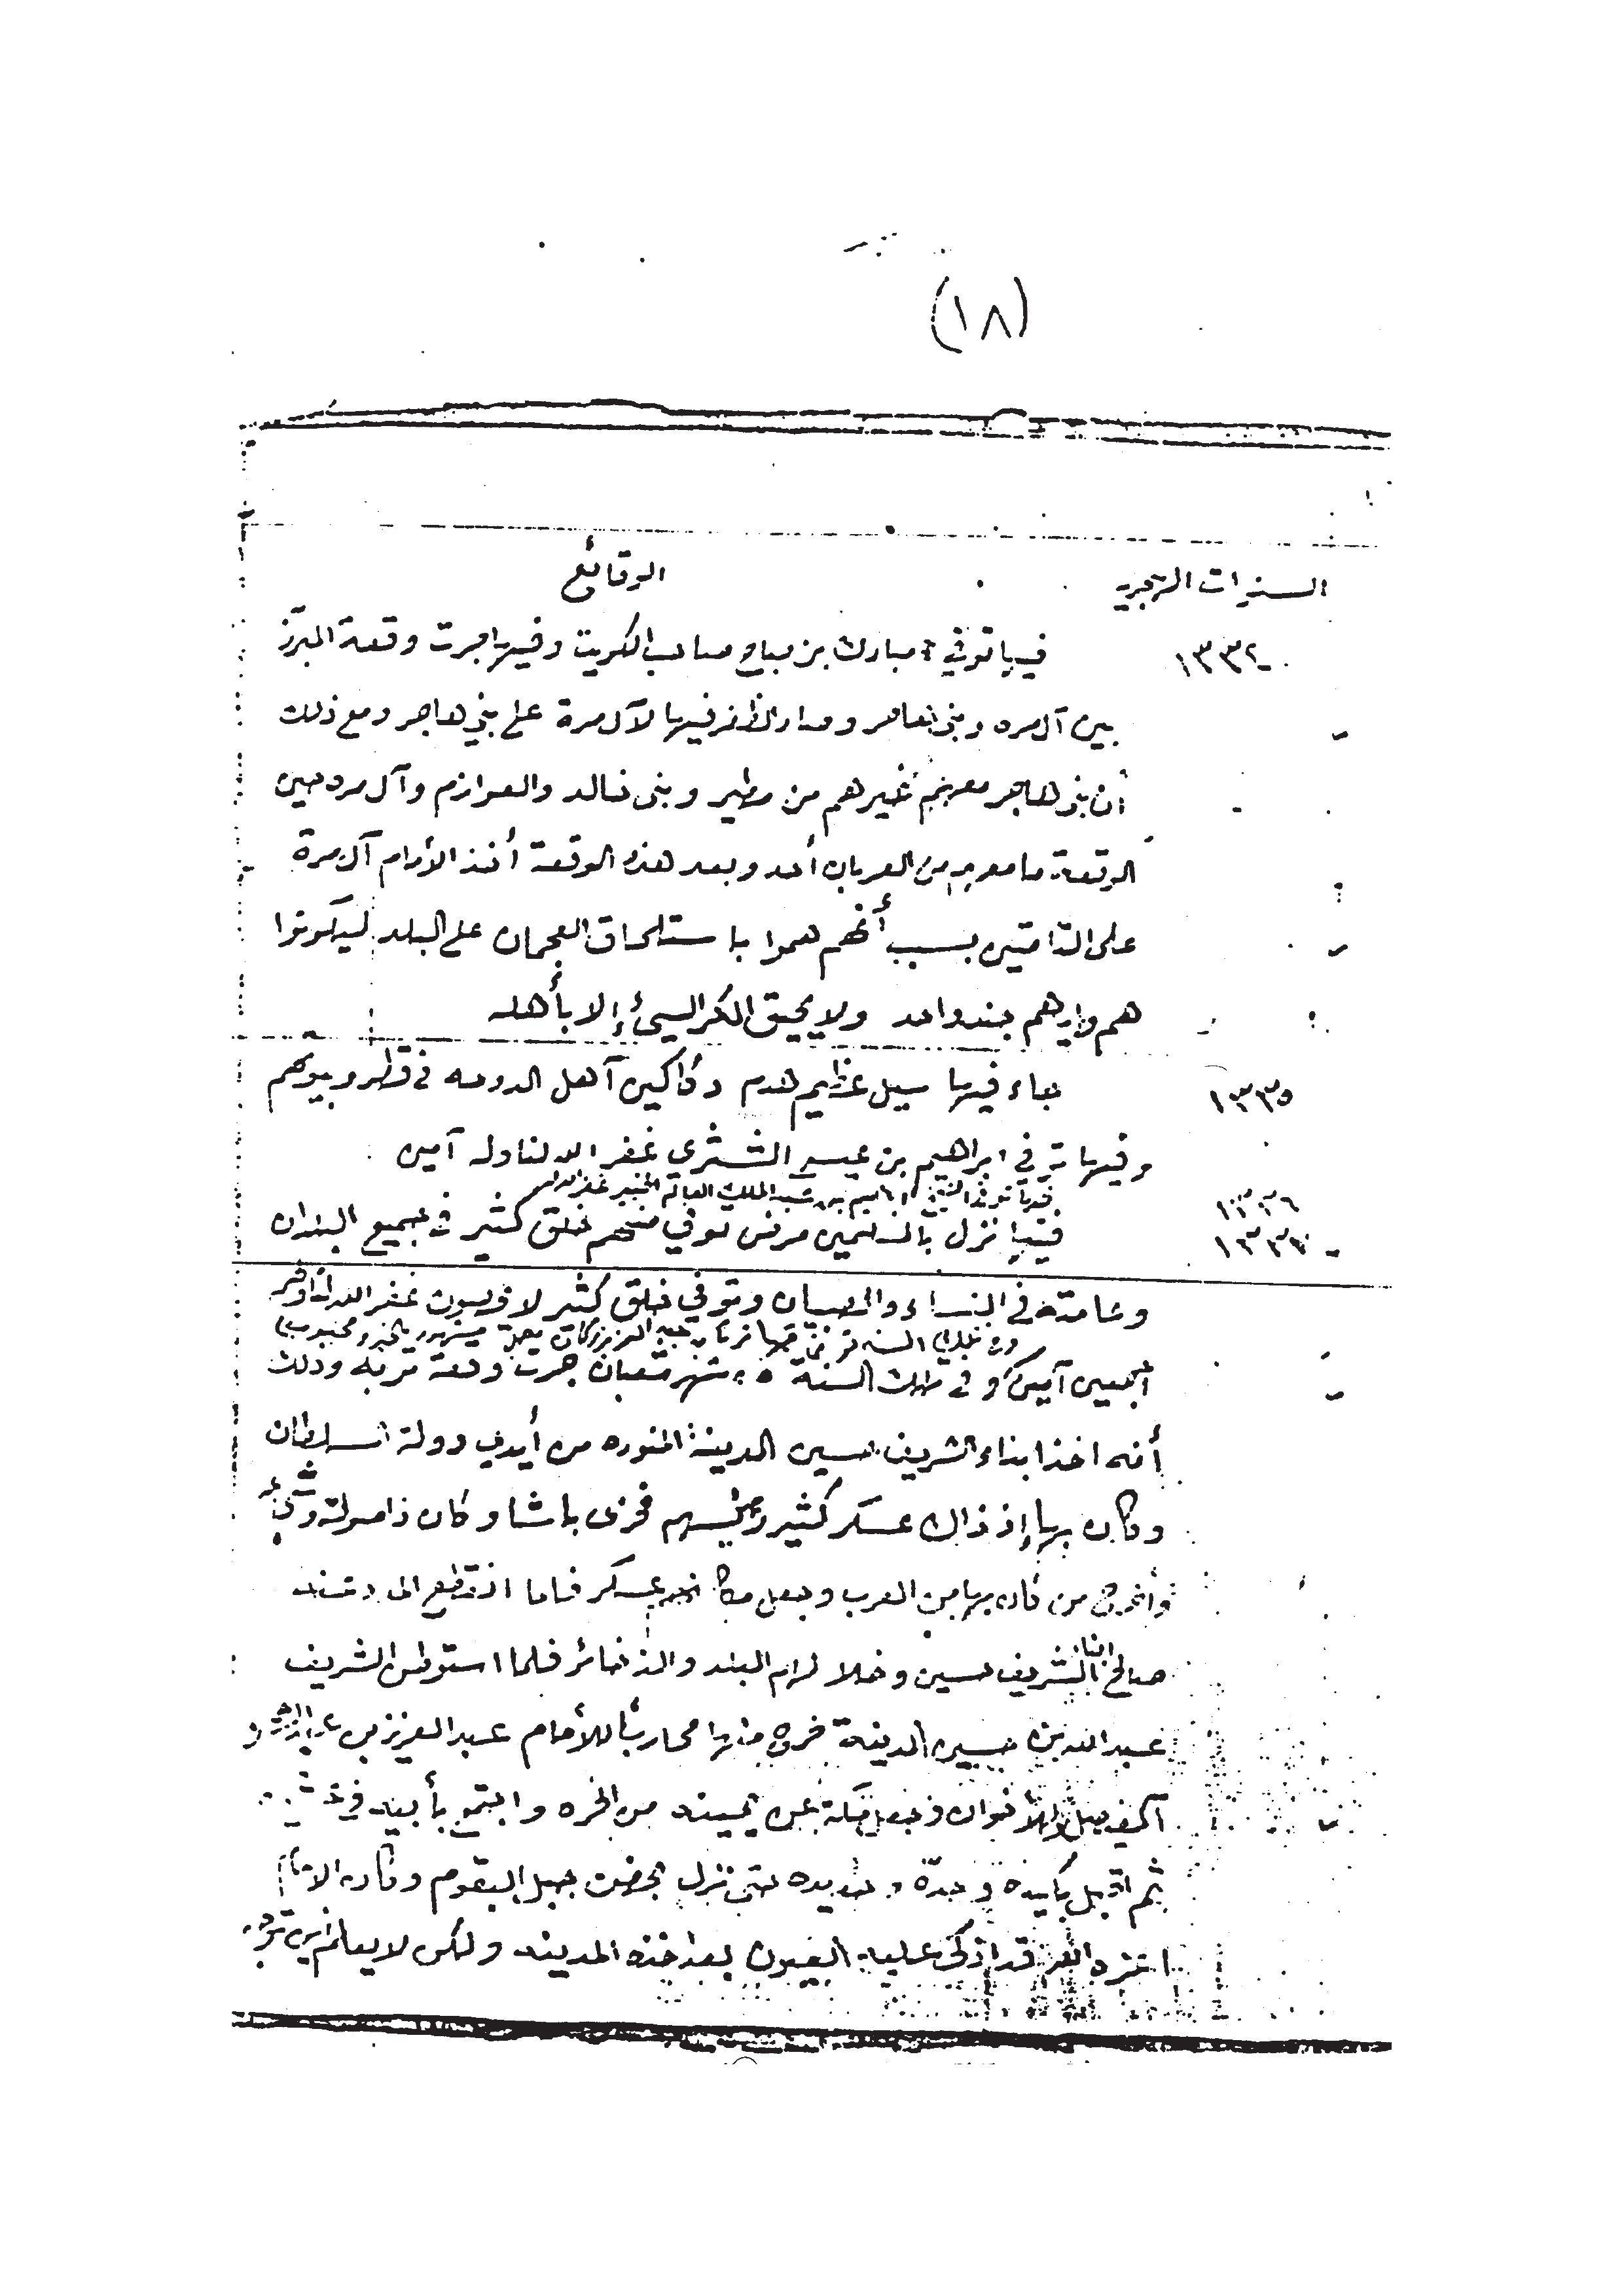 (١٨)
السنوات الهجريه الوقائع
١٣٣٤ فيها توفي مبارك بن صباح صاحب الكويت وفيها جرت وقعة المبرز
بين آل مره وبني هاجر وصار الظفر فيها لآل مرة على بني هاجر ومع ذلك
أن بنو هاجر معهم غيرهم من مطير وبني خالد والعوازم وآل مره حين
الوقعة ما معهم من العربان أحد وبعد هذه الوقعة أخذ الأمام آل مرة
على بسبب أنهم هموا باستلحاق العجمان على البلد ليكونوا
هم وإياهم جند واحد ولا يحيق المكر السيئ إلا بأهله
١٣٣٥ جاء فيها سيل عظيم هدم دكاكين آهل الدوحه في قطر وبيوتهم
وفيها توفي ابراهيم بن عيسى الشثري غفر الله لنا وله آمين
١٣٣٦ فيها توفي الشيخ ابراهيم بن عبد الملك العالم غفر الله له
١٣٣٧ فيها نزل بالمسلمين مرض توفي منهم خلق كثير في جميع البلدان
وشامته في النساء والصبيان وتوفي خلق كثير لا غفر الله لنا ولهم
وفي السنه تركي بن عبد العزيز وكان
أجمعين آمين وفي تلك السنة ٢٥ شهر شعبان جرت وقعة تربه وذلك
أنه اخذ ابناء الشريف حسين المدينة المنوره من أيدي دولة السلطان
وكان بها إذ ذاك عسكر كثير رئيسهم فخري باشا وكان ذا صولة
وأخرج من كان بها من العرب وجعل مكانهم عسكر فلما انقطع المدد عنه
صالح ابناء الشريف حسين وخلا لهم البلد والذخائر فلما استوطن الشريف
عبد الله بن حسين المدينة خرج منها محاربًا للأمام عبد العزيز بن عبد الرحمن
آل فيصل وللأخوان وجعل مكة عن يمينه من الحره واجتمع بأبيه في
ثم اقبل بكيده و وحديده حتى نزل بحضن جبل البقوم وكان الامام
قد اذكى عليه العيون بعد اخذه المدينه ولكن لا يعلم اين